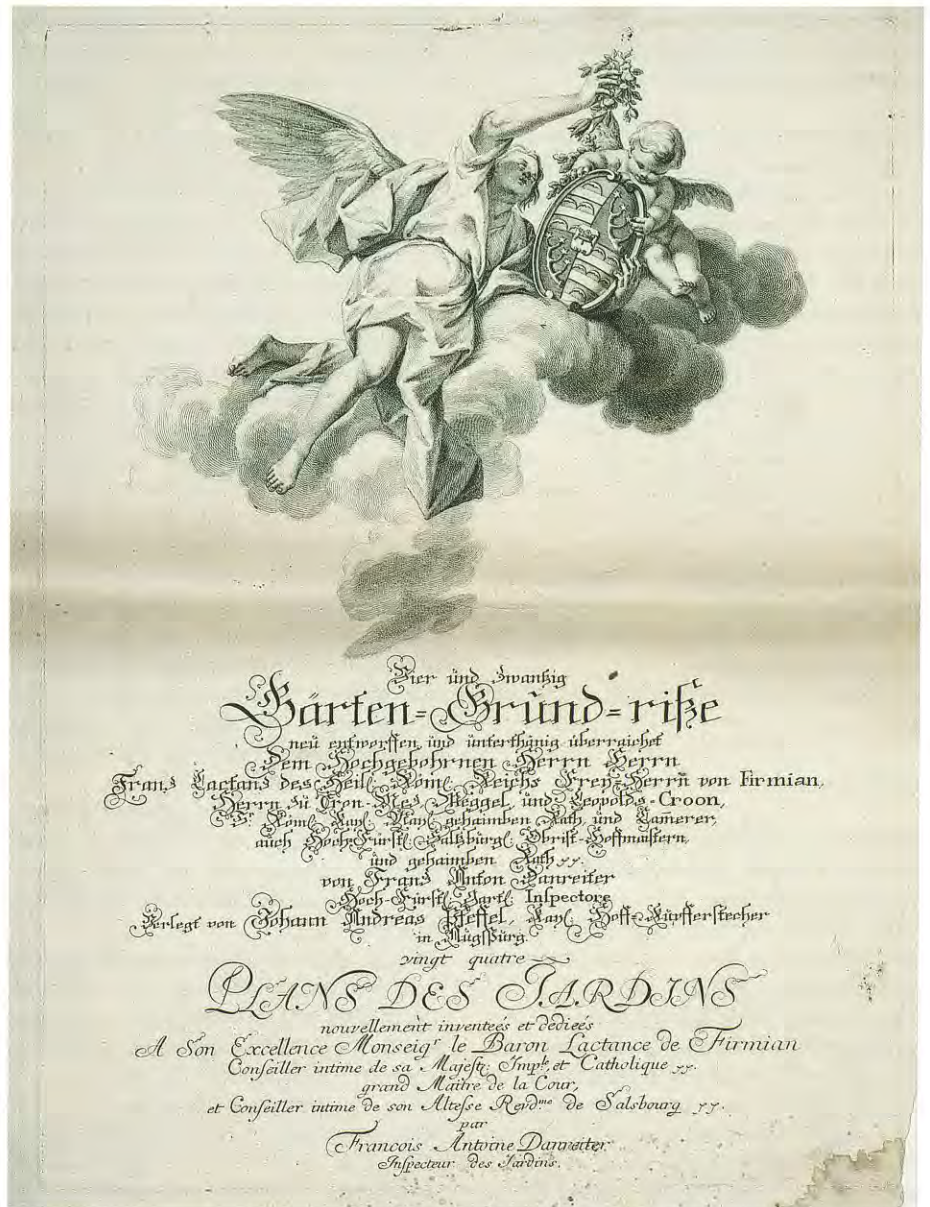 Vier und zwantzig
Gärten=Grund=riße
neu entworffen und unterthänig überraichet
Dem Hochgebohrnen Herrn Herrn
Franz Lactanz des Heil: Röm: Reichs Frey=Herrn von Firmian,
Herrn zu Cron-Mez, Meggel, und Leopolds-Croon,
Röm: Kay: gehaimben Rath, und Camerer,
auch Hoch-Fürstl: Saltzburgl: Obrist-Hoffmaistern,
und gehaimben Rath
von Franz Anton Danreiter
Hoch-Fürstl: Gart: Inspectore
Verlegt von Johann Andreas Pfeffel, Kay: Hoff-Kupfferstecher
in Augspurg.
vingt quatre
PLANS DES JARDINS
nouvellement inventeés et dedieés
A Son Excellence Monseigr le Baron Lactance de Firmian
Conseiller intime de sa Majest: Imple, et Catholique
grand Maitre de la Cour,
et Conseiller intime de son Altesse Revdme de Salsbourg
par
Francois Antoine Danreiter
Inspecteur des Jardins.